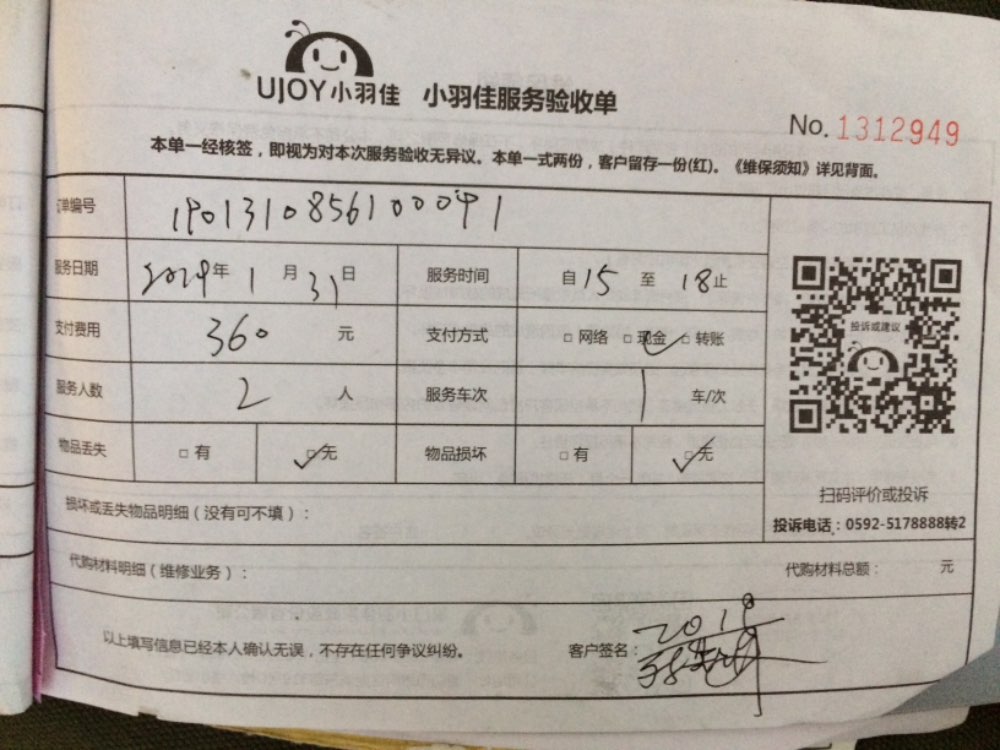 UJOY小羽佳 小羽佳服务验收单
No. 1312949
本单一经核签，即视为对本次服务验收无异议。本单一式两份，客户留存一份(红)。《维保须知》详见背面。
订单编号 19013108561000091
服务日期 2019年 1 月 31 日 服务时间 自 15 至 18 止
支付费用 360 元 支付方式 □ 网络 □ 现金 ✓ □ 转账
投诉或建议
服务人数 2 人 服务车次 1 车/次
物品丢失 □ 有 ✓□ 无 物品损坏 □ 有 ✓□ 无
扫码评价或投诉
投诉电话：0592-5178888转2
损坏或丢失物品明细（没有可不填）：
代购材料明细（维修业务）： 代购材料总额： 元
以上填写信息已经本人确认无误，不存在任何争议纠纷。 客户签名：